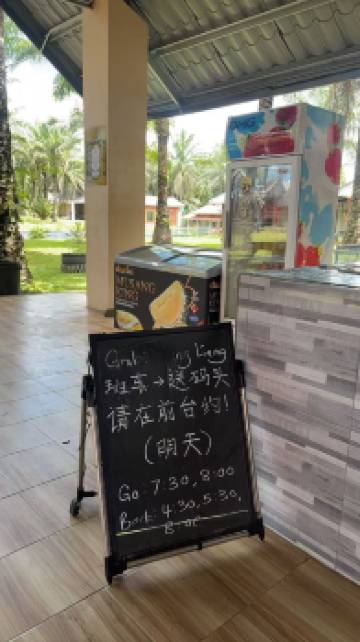 MUSANG
KING
班车→送码头
请在前台约!
(明天)
Go: 7:30, 8:00
Back: 4:30, 5:30,